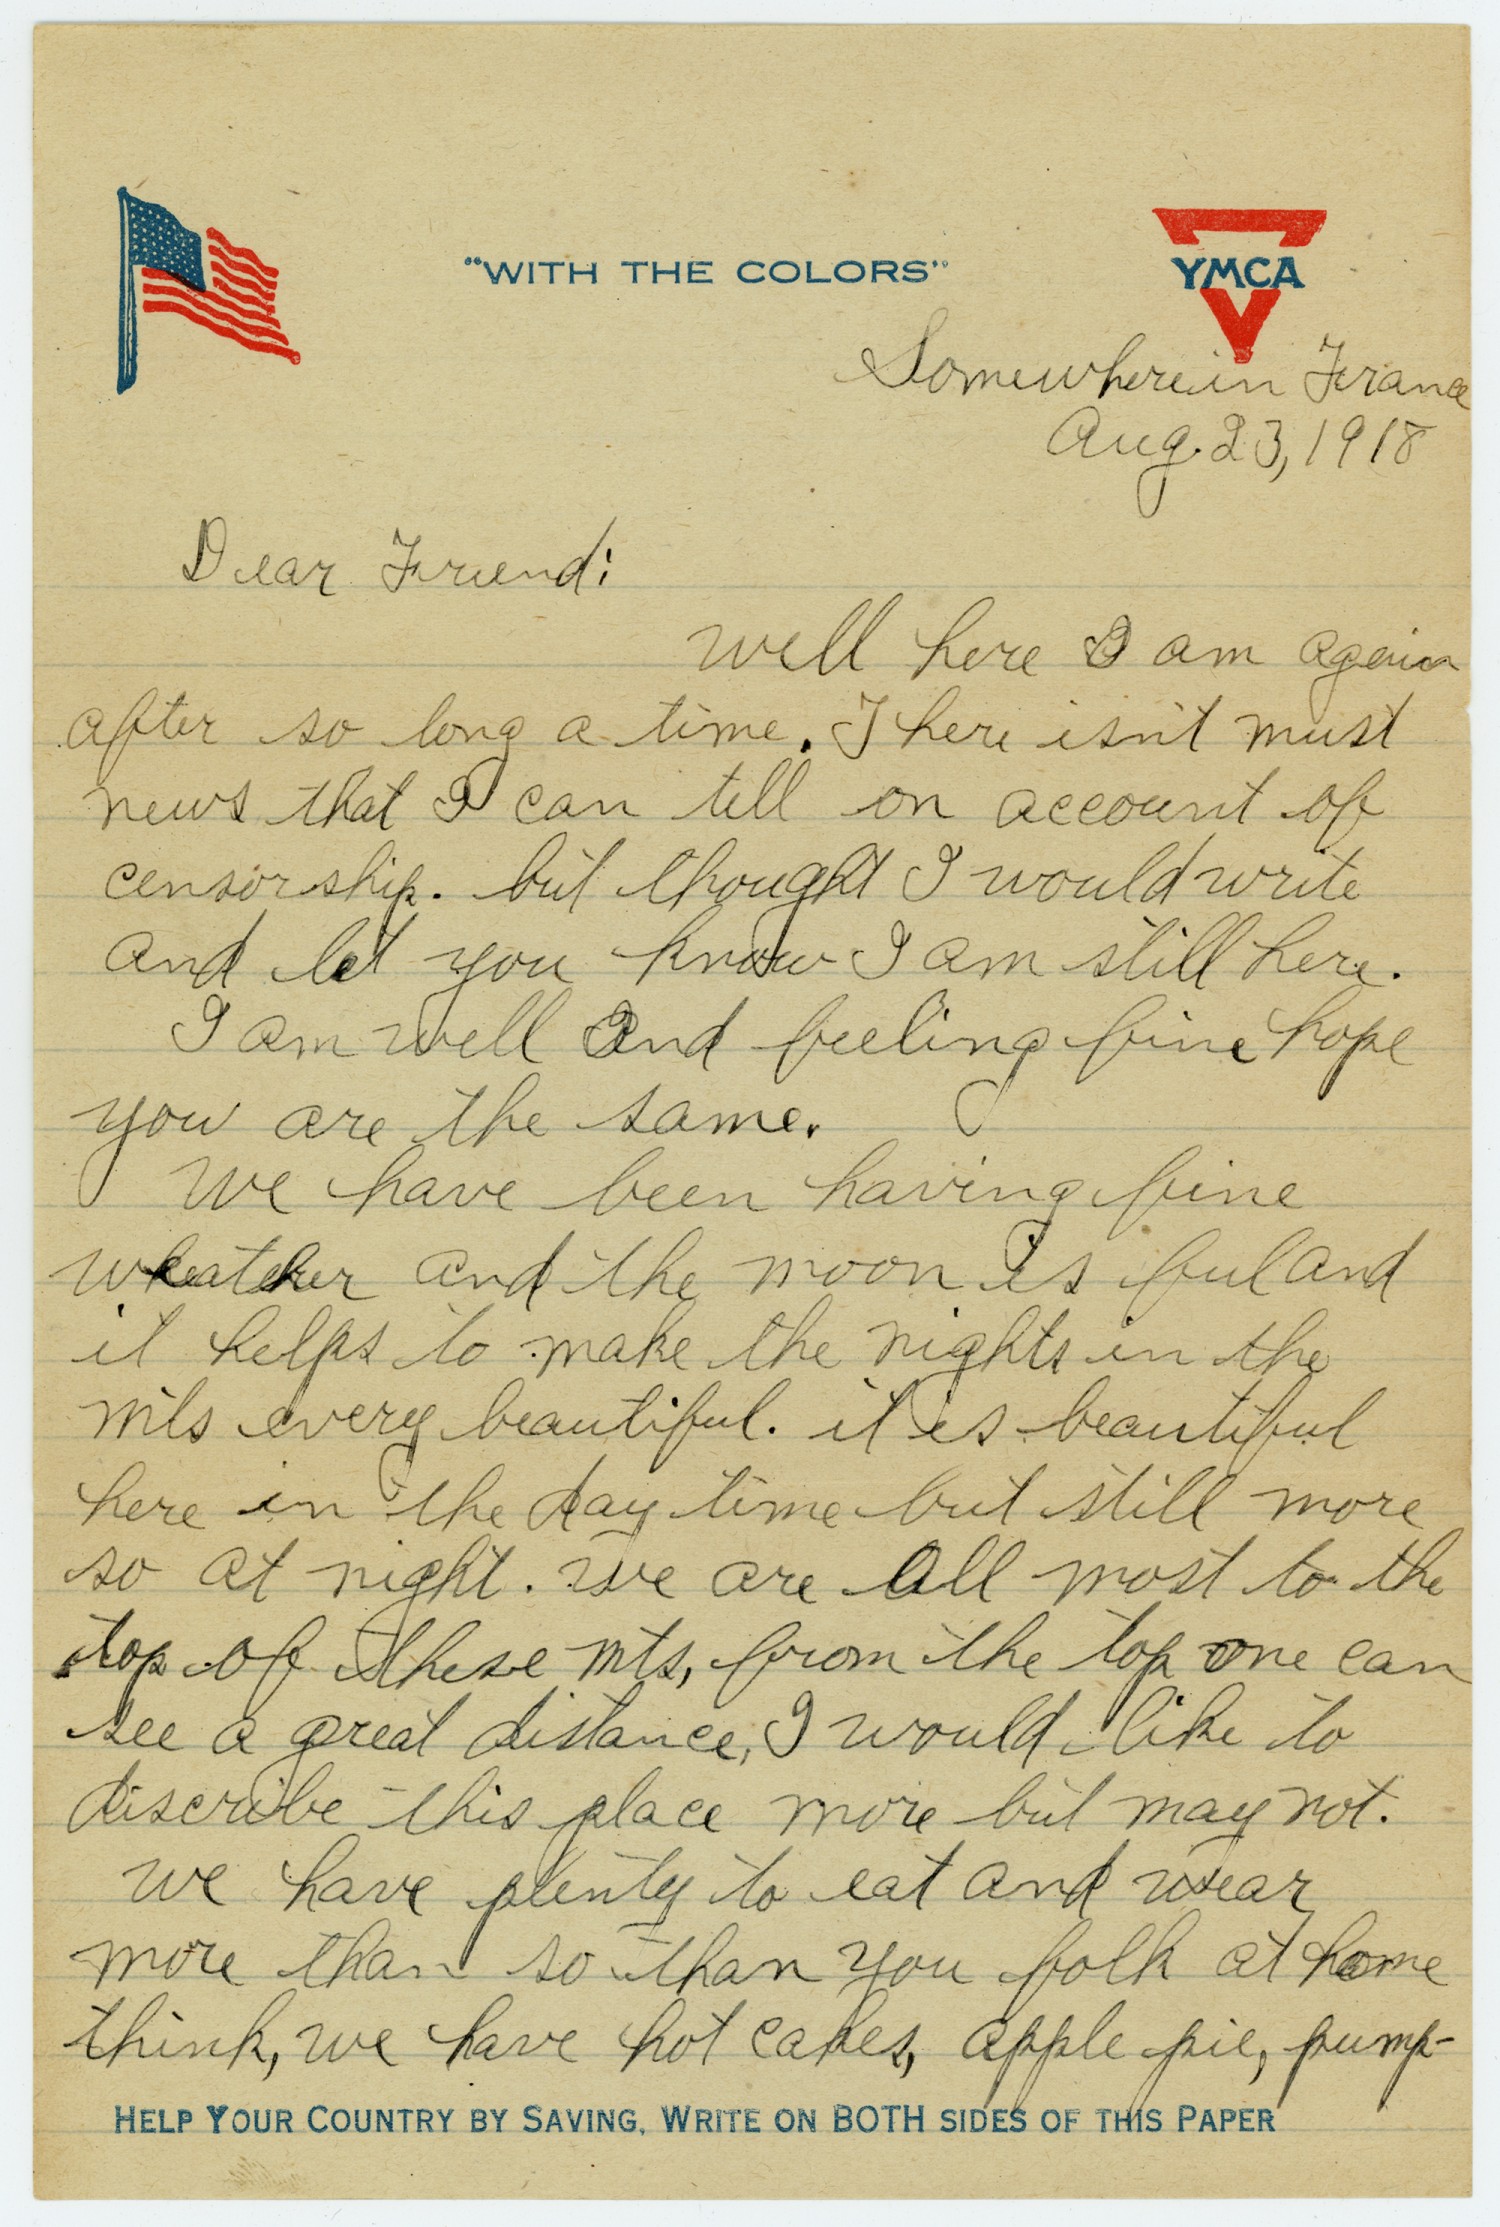 "WITH THE COLORS"
YMCA
Somewhere in France
Aug. 23, 1918
Dear Friend:
Well here I am again
after so long a time. There isn't must
news that I can tell on account of
censorship. but thought I would write
and let you know I am still here.
I am well and feeling fine hope
you are the same.
We have been having fine
wheather and the moon is ful and
it helps to make the nights in the
mts every beautiful. it is beautiful
here in the day time but still more
so at night. we are all most to the
top of these mts, from the top one can
see a great distance, I would like to
discribe this place more but may not.
we have plenty to eat and wear
more than so than you folk at home
think, we have hot cakes, apple pie, pump-
HELP YOUR COUNTRY BY SAVING. WRITE ON BOTH SIDES OF THIS PAPER